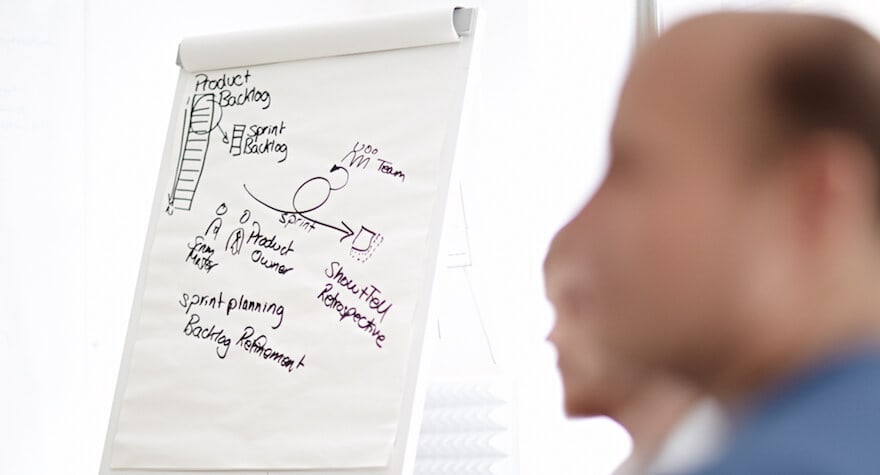 Product
Backlog
Sprint
Backlog
Team
Sprint
Product
Owner
Master
Show+Tell
Retrospective
Sprint planning
Backlog Refinement